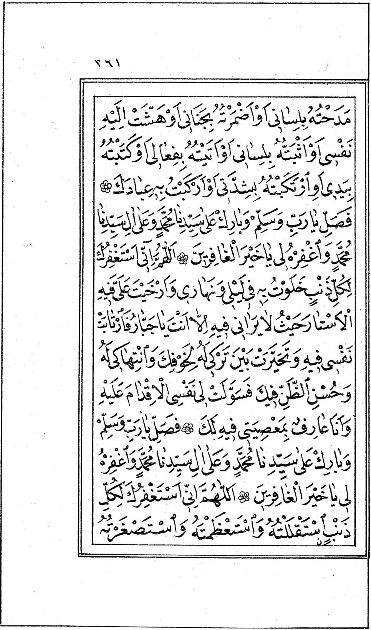 ٣٦١
مَدَحْتُهُ بِلِسَانِي أَوْ أَضْمَرْتُهُ بِجَنَانِي أَوْ هَشَّتْ إِلَيْهِ
نَفْسِي أَوْ أَثْبَتُّهُ بِلِسَانِي أَوْ أَتَيْتُهُ بِفِعَالِي أَوْ كَتَبْتُهُ
بِيَدِي أَوِ ارْتَكَبْتُهُ بِشِدَّتِي أَوْ أَرْكَبْتُ بِهِ عِبَادَكَ
فَصَلِّ يَا رَبِّ وَسَلِّمْ وَبَارِكْ عَلَى سَيِّدِنَا مُحَمَّدٍ وَعَلَى آلِ سَيِّدِنَا
مُحَمَّدٍ وَاغْفِرْهُ لِي يَا خَيْرَ الْغَافِرِينَ اللَّهُمَّ إِنِّي أَسْتَغْفِرُكَ
لِكُلِّ ذَنْبٍ خَلَوْتُ بِهِ فِي لَيْلِي وَنَهَارِي وَأَرْخَيْتَ عَلَيَّ فِيهِ
الْأَسْتَارَ حَيْثُ لَا يَرَانِي فِيهِ إِلَّا أَنْتَ يَا جَبَّارُ فَارْتَابَتْ
نَفْسِي فِيهِ وَتَحَيَّرَتْ بَيْنَ تَرْكِي لَهُ لِخَوْفِكَ وَانْتِهَاكِي لَهُ
وَحُسْنِ الظَّنِّ فِيكَ فَسَوَّلَتْ لِي نَفْسِي الْإِقْدَامَ عَلَيْهِ
وَأَنَا عَارِفٌ بِمَعْصِيَتِي فِيهِ لَكَ فَصَلِّ يَا رَبِّ وَسَلِّمْ
وَبَارِكْ عَلَى سَيِّدِنَا مُحَمَّدٍ وَعَلَى آلِ سَيِّدِنَا مُحَمَّدٍ وَاغْفِرْهُ
لِي يَا خَيْرَ الْغَافِرِينَ اللَّهُمَّ إِنِّي أَسْتَغْفِرُكَ لِكُلِّ
ذَنْبٍ اسْتَقْلَلْتُهُ وَاسْتَعْظَمْتَهُ وَاسْتَصْغَرْتُهُ